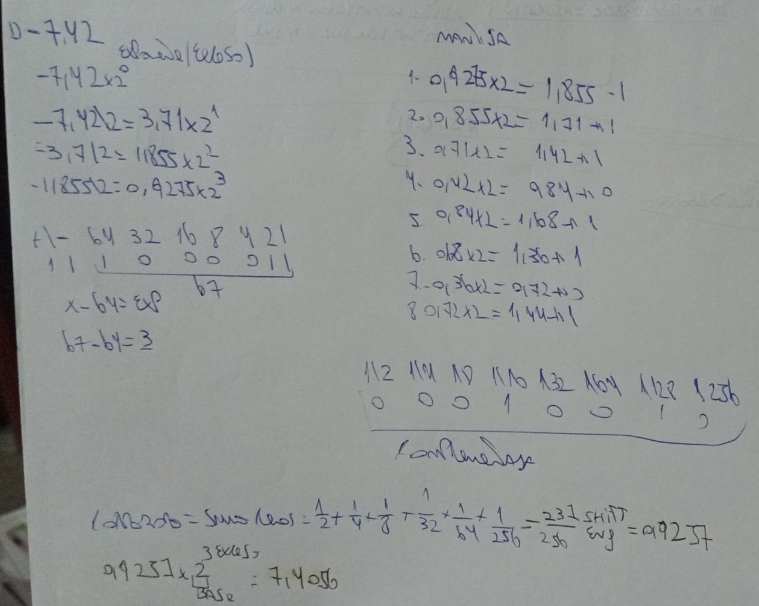 D-7,42
-7,42x2⁰
-7,42\2=3,71x2¹
-3,7\2=1,855x2²
-1,855\2=0,9275x2³
+\- 64 32 16 8 4 2 1
1 1 1 0 0 0 0 1 1
67
x-64=exp
67-64=3
1- 0,9275x2=1,855-1
2. 0,855x2=1,71→1
3. 0,71x2= 1,42→1
4. 0,42x2= 0,84→0
5. 0,84x2=1,68→1
6. 0,68x2=1,36→1
7- 0,36x2=0,72→0
8 0,72x2=1,44→1
1\2 1\4 1\8 1\16 1\32 1\64 1\128 1\256
0 0 0 1 0 0 1 0
= 1/2+1/4+1/8+1/32+1/64+1/256=237/256 SHIFT ENG =0,9257
0,9257x2³ exceso = 7,4056
BASE